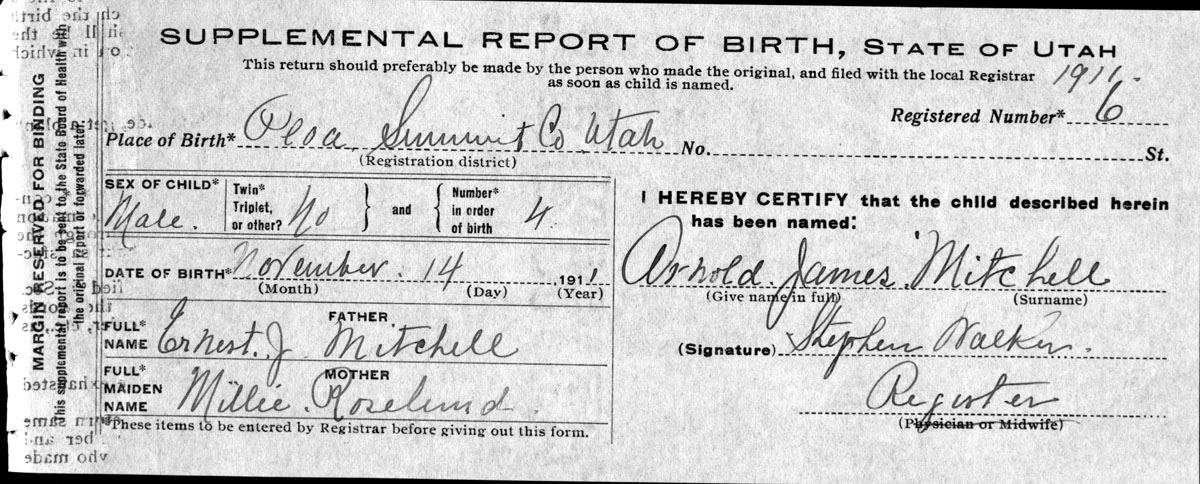 SUPPLEMENTAL REPORT OF BIRTH, STATE OF UTAH
This return should preferably be made by the person who made the original, and filed with the local Registrar
as soon as child is named.
1911
Registered Number* 6
Place of Birth* Peoa Summit Co Utah No. St.
(Registration district)
SEX OF CHILD* Male.
Twin* Triplet, or other? No } and { Number* in order of birth 4
DATE OF BIRTH* November. 14 1911
(Month) (Day) (Year)
FATHER
FULL* NAME Ernest. J. Mitchell
MOTHER
FULL* MAIDEN NAME Millie. Roselund
*These items to be entered by Registrar before giving out this form.
I HEREBY CERTIFY that the child described herein
has been named:
Arnold. James. Mitchell
(Give name in full) (Surname)
(Signature) Stephen Walker.
Register
(Physician or Midwife)
MARGIN RESERVED FOR BINDING
This supplemental report is to be sent to the State Board of Health with
the original report or forwarded later.